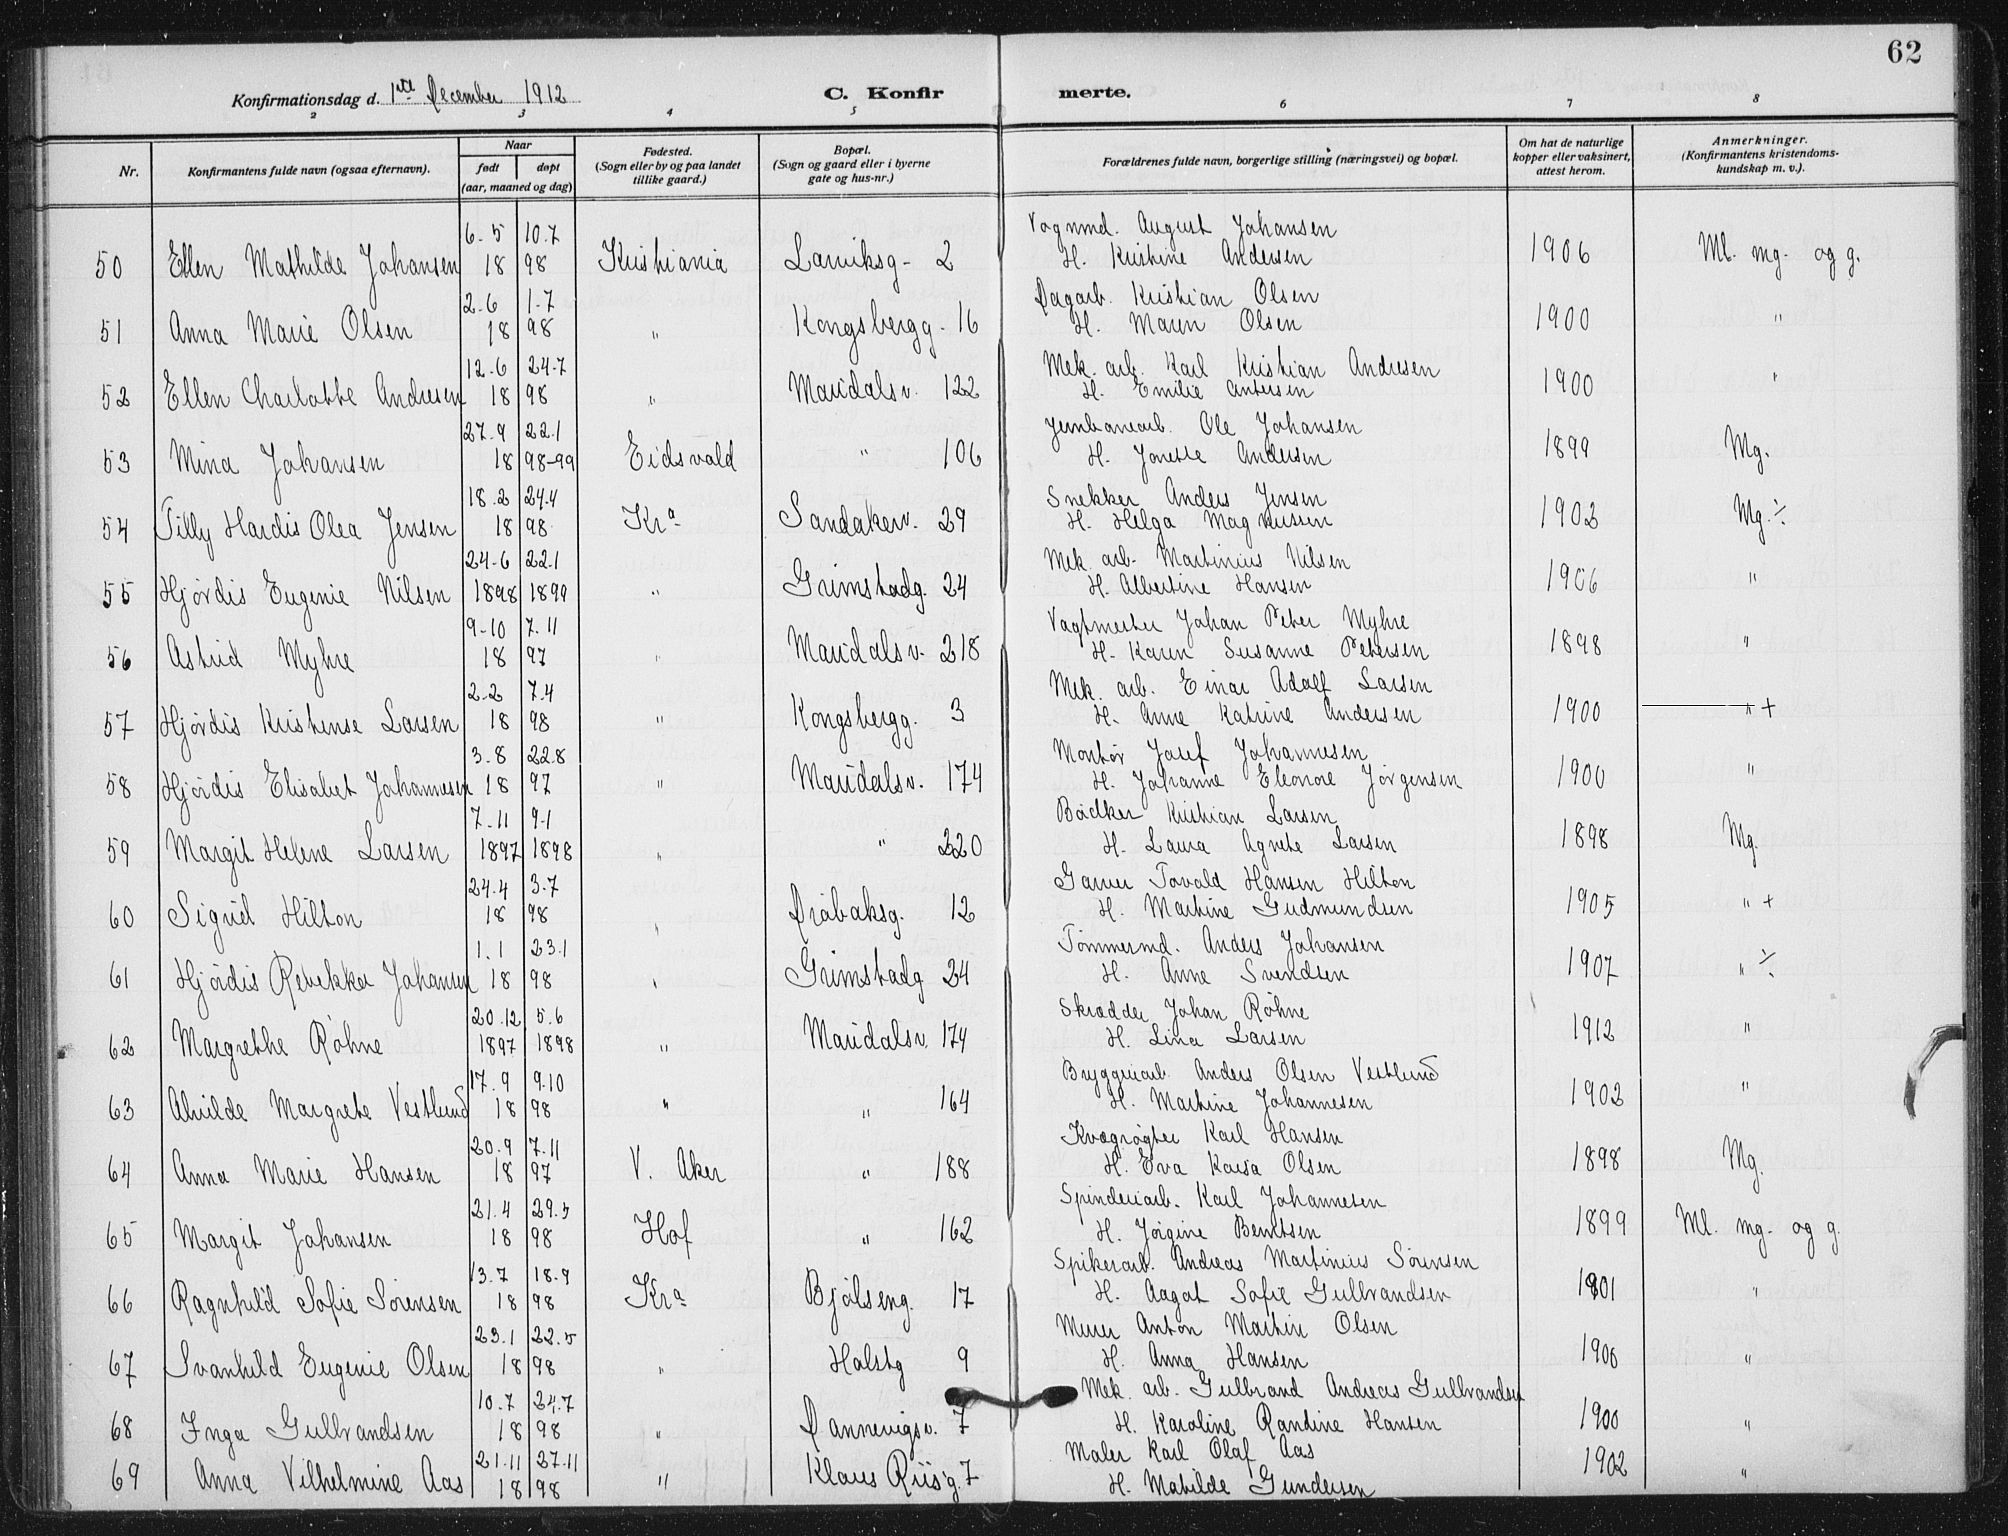 62
Konfirmationsdag d. 1ste December 1912 C. Konfir merte.
2 3 4 5 6 7 8
Nr. Konfirmantens fulde navn (ogsaa efternavn). Naar født døpt (aar, maaned og dag) Fødested. (Sogn eller by og paa landet tillike gaard.) Bopæl. (Sogn og gaard eller i byerne gate og hus-nr.) Forældrenes fulde navn, borgerlige stilling (næringsvei) og bopæl. Om hat de naturlige kopper eller vaksinert, attest herom. Anmerkninger. (Konfirmantens kristendoms-kundskap m. v.).
6-5 10.7 Vognmd. August Johansen
50 Ellen Mathilde Johansen 18 98 Kristiania Larviksg- 2 H. Kristine Andersen 1906 Ml. mg. og g.
2-6 1-7 Dagarb. Kristian Olsen
51 Anna Marie Olsen 18 98 " Kongsbergg. 16 H. Maren Olsen 1900 "
12-6 24-7 Mek. arb. Karl Kristian Andresen
52 Ellen Charlotte Andresen 18 98 " Maridalsv. 122 H. Emilie Antersen 1900 "
27-9 22.1 Jernbanearb. Ole Johansen
53 Mina Johansen 18 98-99 Eidsvold " 106 H. Jonette Andersen 1899 Mg.
18.2 24.4 Snekker Anders Jensen
54 Tilly Hardis Olea Jensen 18 98 Kra Sandakerv. 29 H. Helga Magnussen 1902 Mg. ÷
24-6 22.1 Mek. arb. Martinius Nilsen
55 Hjørdis Eugenie Nilsen 1898 1899 " Grimstadg. 24 H. Albertine Hansen 1906 "
9-10 7.11 Vagtmester Johan Peter Myhre
56 Astrid Myhre 18 97 " Maridalsv. 218 H. Karen Susanne Petersen 1898 "
2-2 7.4 Mek. arb. Einar Adolf Larsen
57 Hjørdis Kristense Larsen 18 98 " Kongsbergg. 3 H. Anne Katrine Andersen 1900 " +
3.8 22.8 Montør Josef Johannesen
58 Hjørdis Elisabet Johannesen 18 97 " Maridalsv. 174 H. Johanne Eleonore Jørgensen 1900 "
7-11 9-1 Bødker Kristian Larsen
59 Margit Helene Larsen 1897 1898 " " 220 H. Laura Agnete Larsen 1898 Mg.
24.4 3.7 Garver Torvald Hansen Hilton
60 Sigrid Hilton 18 98 " Drøbaksg. 12 H. Martine Gudmundsen 1905 " +
1.1 23.1 Tømmermd. Anders Johansen
61 Hjørdis Rebekka Johansen 18 98 " Grimstadg 24 H. Anne Svendsen 1907 " ÷
20.12 5.6 Skrædder Johan Røhne
62 Margrethe Røhne 1897 1898 " Maridalsv. 174 H. Lina Larsen 1912 "
17.9 9.10 Bryggeriarb. Anders Olsen Vestlund
63 Alvilde Margrete Vestlund 18 98 " " 164 H. Martine Johannesen 1902 "
20.9 7.11 Kvægrøgter Karl Hansen
64 Anna Marie Hansen 18 97 V. Aker " 188 H. Eva Kaisa Olsen 1898 Mg.
21.4 29.5 Spinderiarb. Karl Johannesen
65 Margit Johansen 18 98 Hof " 162 H. Jørgine Berntsen 1899 Ml. mg. og g
13.7 18.9 Spikerarb. Andreas Martinius Sørensen
66 Ragnhild Sofie Sørensen 18 98 Kra Bjølseng. 17 H. Aagot Sofie Gulbrandsen 1901 "
23.1 22.5 Murer Anton Martin Olsen
67 Svanhild Eugenie Olsen 18 98 " Holstg 9 H. Anna Hansen 1900 "
10.7 24.7 Mek. arb. Gulbrand Andreas Gulbrandsen
68 Inga Gulbrandsen 18 98 " Dannevigsv. 7 H. Karoline Randine Hansen 1900 "
21.11 27.11 Maler Karl Olaf Aas
69 Anna Vilhelmine Aas 18 98 " Klaus Riisg. 7 H. Matilde Gundersen 1902 "